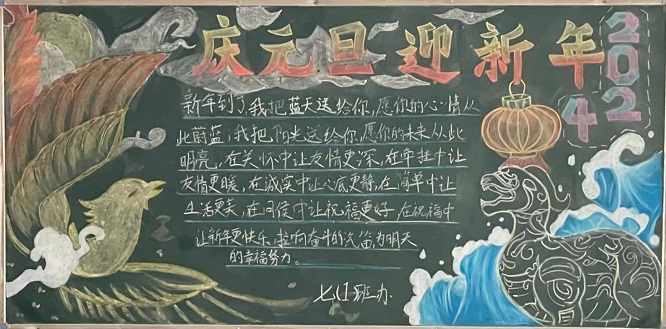 庆元旦迎新年
2024
新年到了,我把蓝天送给你,愿你的心情从
此蔚蓝;我把阳光送给你,愿你的未来从此
明亮,在关怀中让友情更深,在牵挂中让
友情更暖,在诚实中让心底更静,在简单中让
生活更美,在问候中让祝福更好,在祝福中
让新年更快乐,拉响奋斗的汽笛,为明天
的幸福努力。
七(1)班办